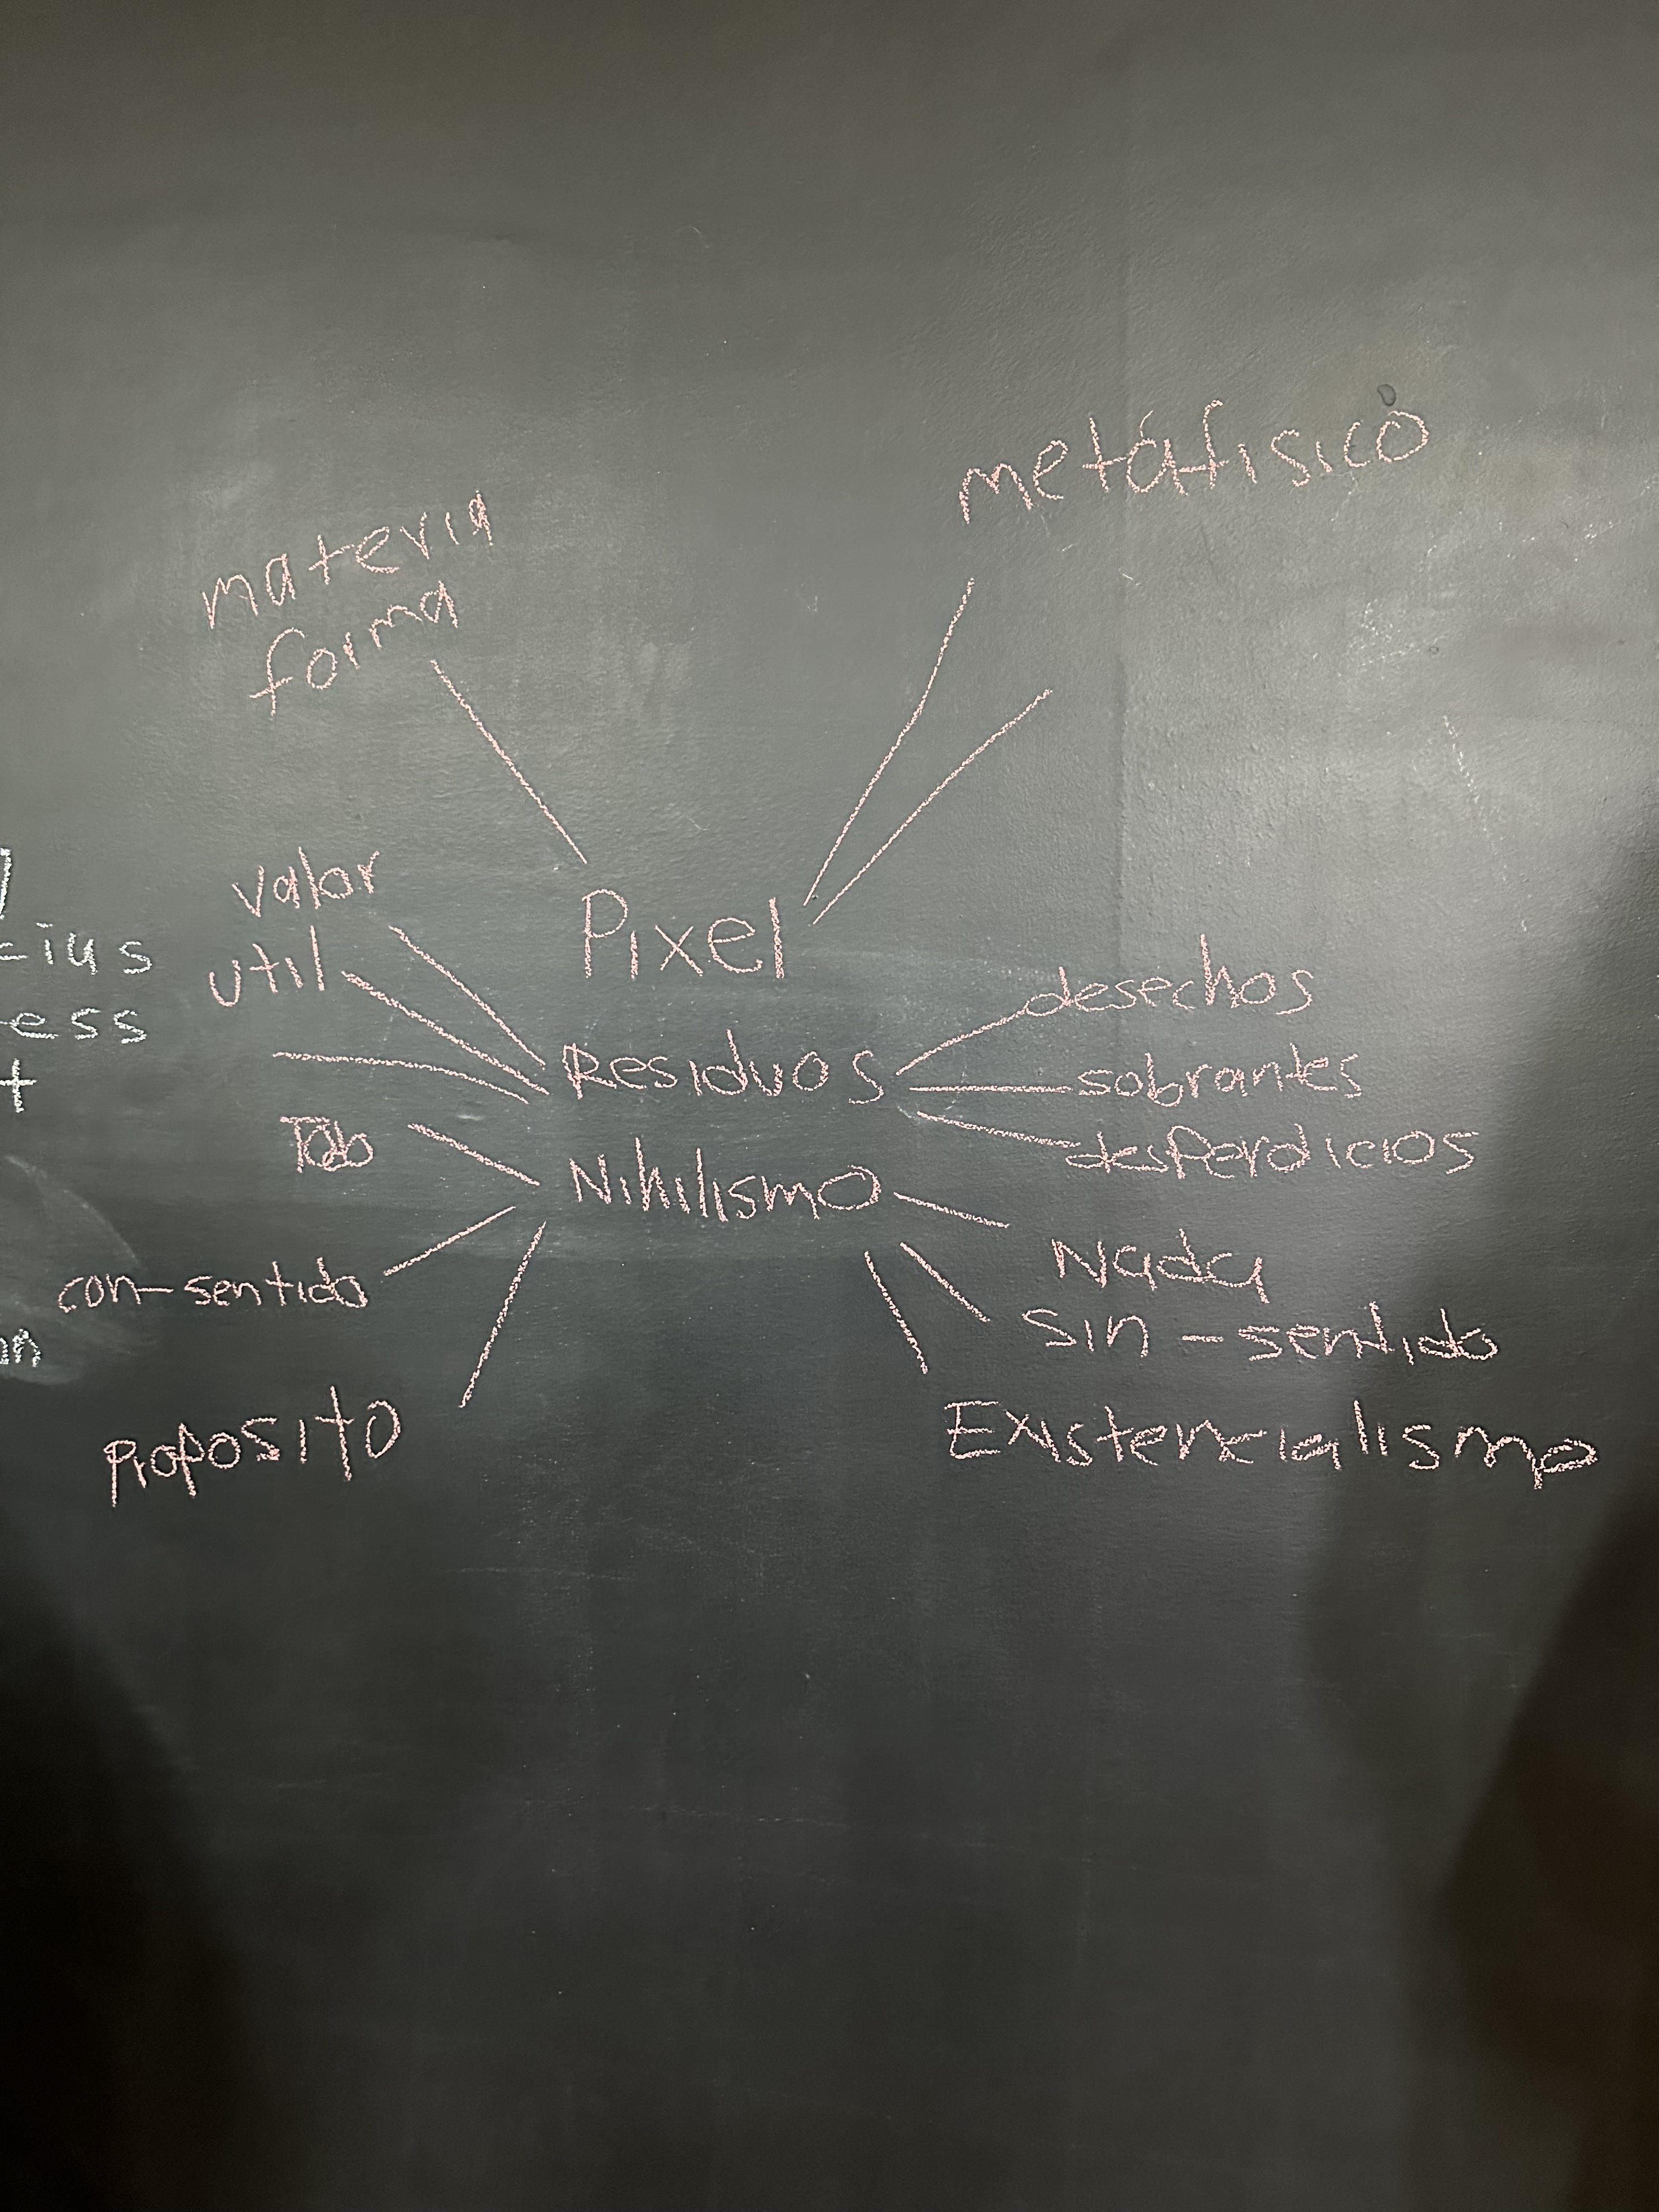 metáfisico
materia
forma
valor
util
Pixel
desechos
Residuos
sobrantes
desperdicios
Nihilismo
Nada
con-sentido
sin-sentido
Proposito
Existencialismo